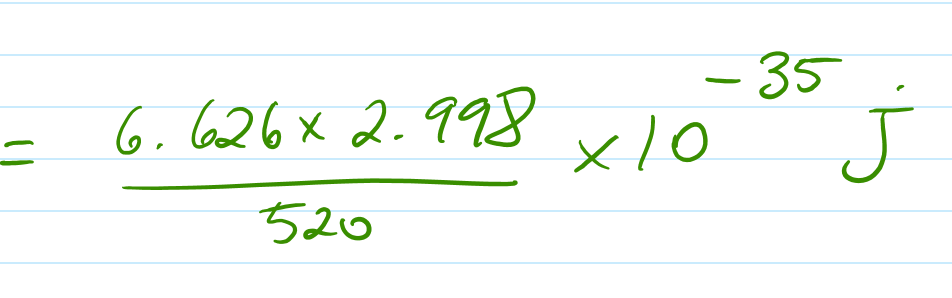 = 6.626 × 2.998 / 520 × 10^-35 j